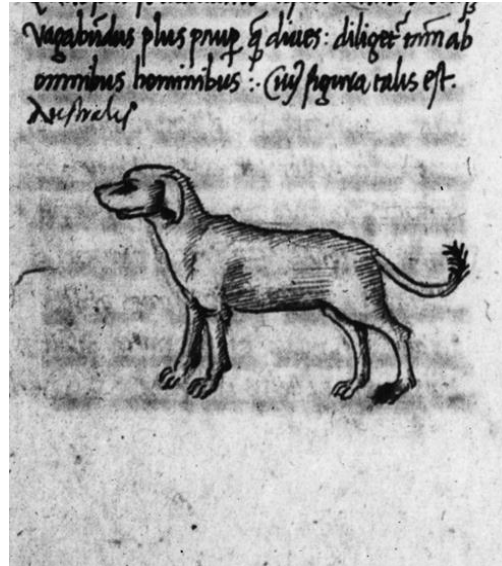 vagabūdus plus paup̱ q̃ diues: diliget̃ tm̃ ab
omnibus hominibus :· Cuiꝰ figura talis est.
Australis